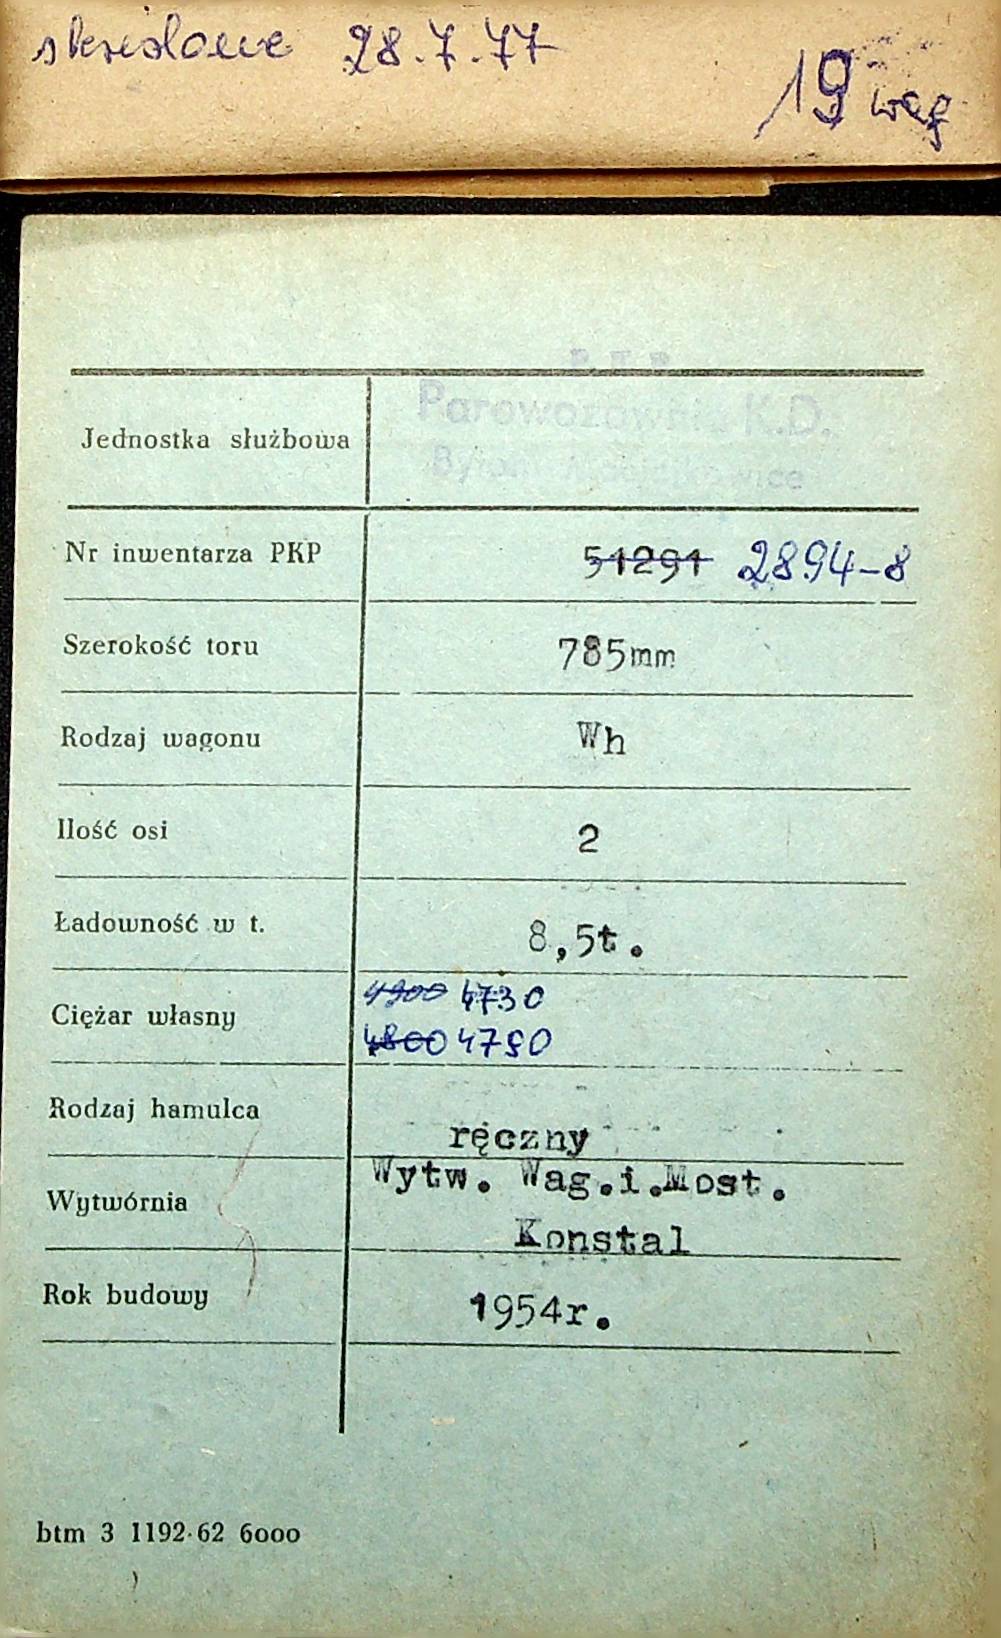 skreślone 28.7.77
19 wag
P.K.P.
Parowozownia K.D.
Bytom
Jednostka służbowa
Nr inwentarza PKP 51291 2894-8
Szerokość toru 785mm
Rodzaj wagonu Wh
Ilość osi 2
Ładowność w t. 8,5t.
4900 4730
Ciężar własny
4800 4790
Rodzaj hamulca ręczny
Wytw. Wag.i.Most.
Wytwórnia
Konstal
Rok budowy 1954r.
btm 3 1192-62 6000